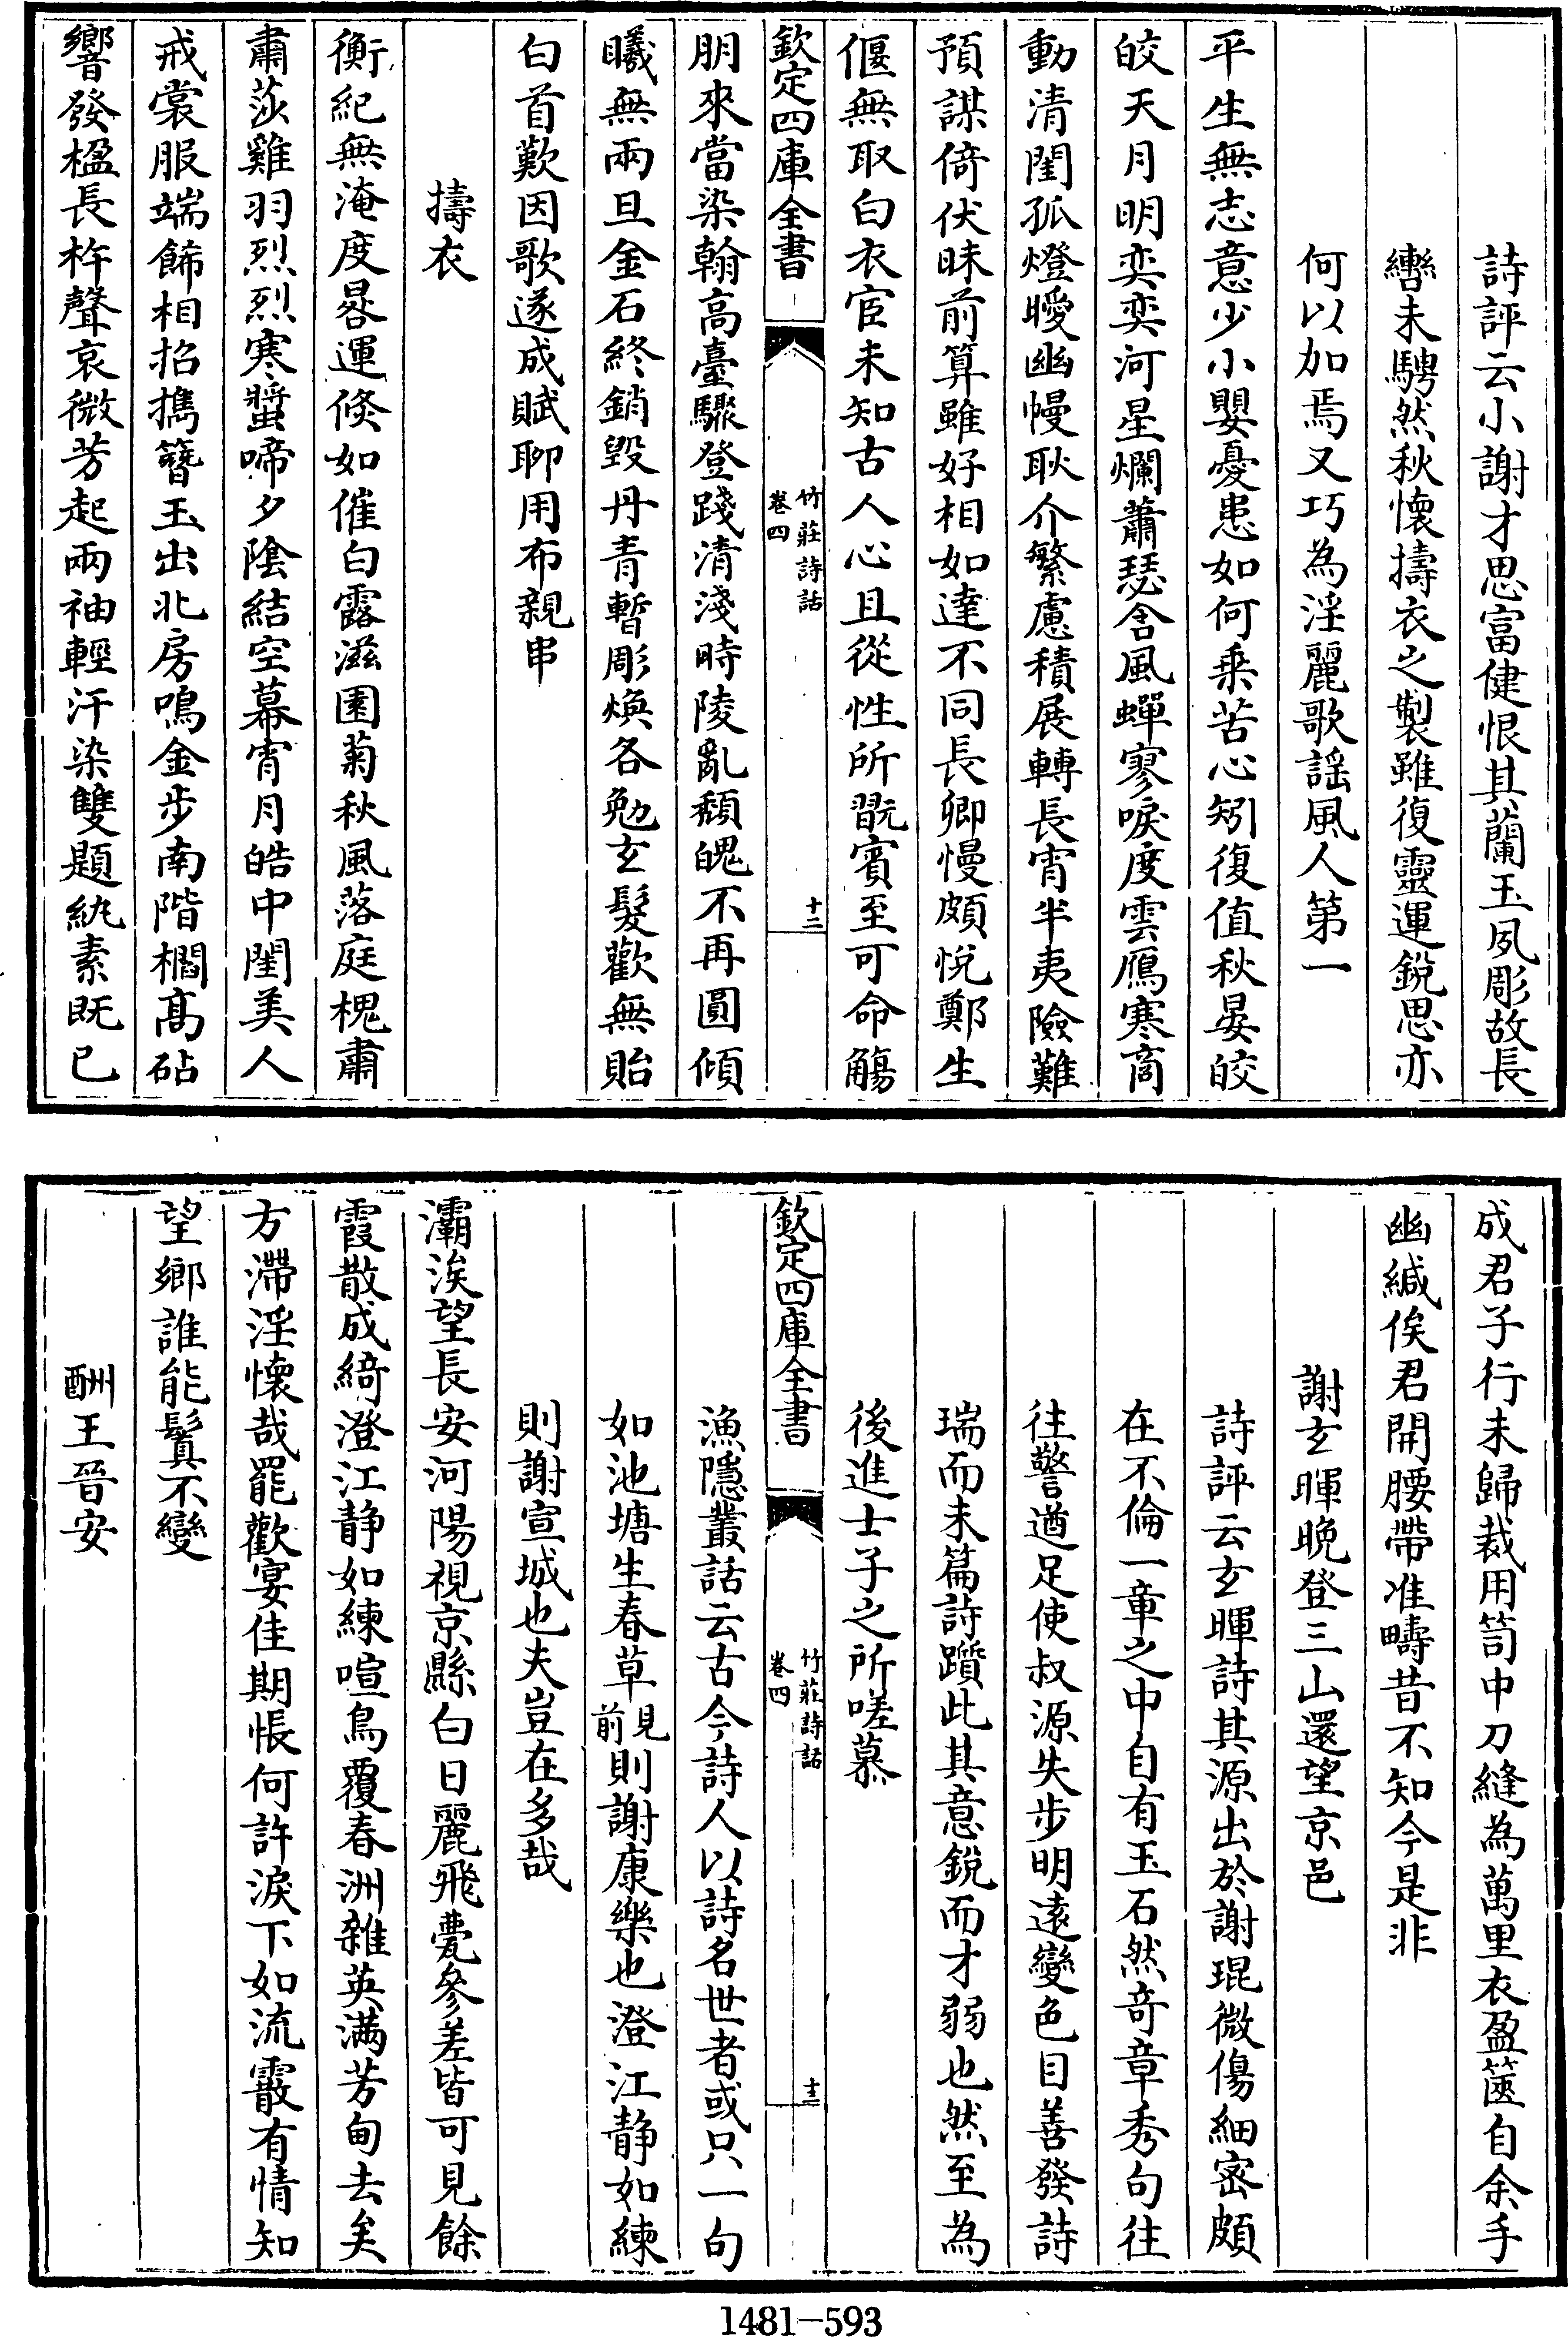 詩評云小謝才思富健恨其蘭玉夙彫故長
轡未騁然秋懷擣衣之製雖復靈運銳思亦
何以加焉又巧為淫麗歌謡風人第一
平生無志意少小嬰憂患如何乗苦心矧復值秋晏皎
皎天月明奕奕河星爛蕭瑟含風蟬寥唳度雲鴈寒商
動清閨孤燈曖幽幔耿介繁慮積展轉長宵半夷險難
預謀倚伏昧前算雖好相如達不同長卿慢頗悅鄭生
偃無取白衣宦未知古人心且從性所翫賓至可命觴
欽定四庫全書
竹莊詩話
卷四
十二
朋來當染翰高臺驟登踐清淺時陵亂頽魄不再圓傾
曦無兩旦金石終銷毀丹青暫彫煥各勉玄髮歡無貽
白首歎因歌遂成賦聊用布親串
擣衣
衡紀無淹度晷運倏如催白露滋園菊秋風落庭槐肅
肅莎雞羽烈烈寒螿啼夕陰結空幕宵月皓中閨美人
戒裳服端飾相招攜簪玉出北房鳴金步南階櫩髙砧
響發楹長杵聲哀微芳起兩袖輕汗染雙題紈素既已
成君子行未歸裁用笥中刀縫為萬里衣盈篋自余手
幽緘俟君開腰帶准疇昔不知今是非
謝玄暉晚登三山還望京邑
詩評云玄暉詩其源出於謝琨微傷細宻頗
在不倫一章之中自有玉石然竒章秀句往
往警遒足使叔源失步明遠變色目善發詩
瑞而未篇詩躓此其意銳而才弱也然至為
後進士子之所嗟慕
欽定四庫全書
竹莊詩話
卷四
十三
漁隱叢話云古今詩人以詩名世者或只一句
如池塘生春草見前則謝康樂也澄江静如練
則謝宣城也夫豈在多哉
灞涘望長安河陽視京縣白日麗飛甍參差皆可見餘
霞散成綺澄江静如練喧鳥覆春洲雜英滿芳甸去矣
方滯淫懷哉罷歡宴佳期悵何許淚下如流霰有情知
望鄉誰能鬒不變
酬王晉安
1481-593